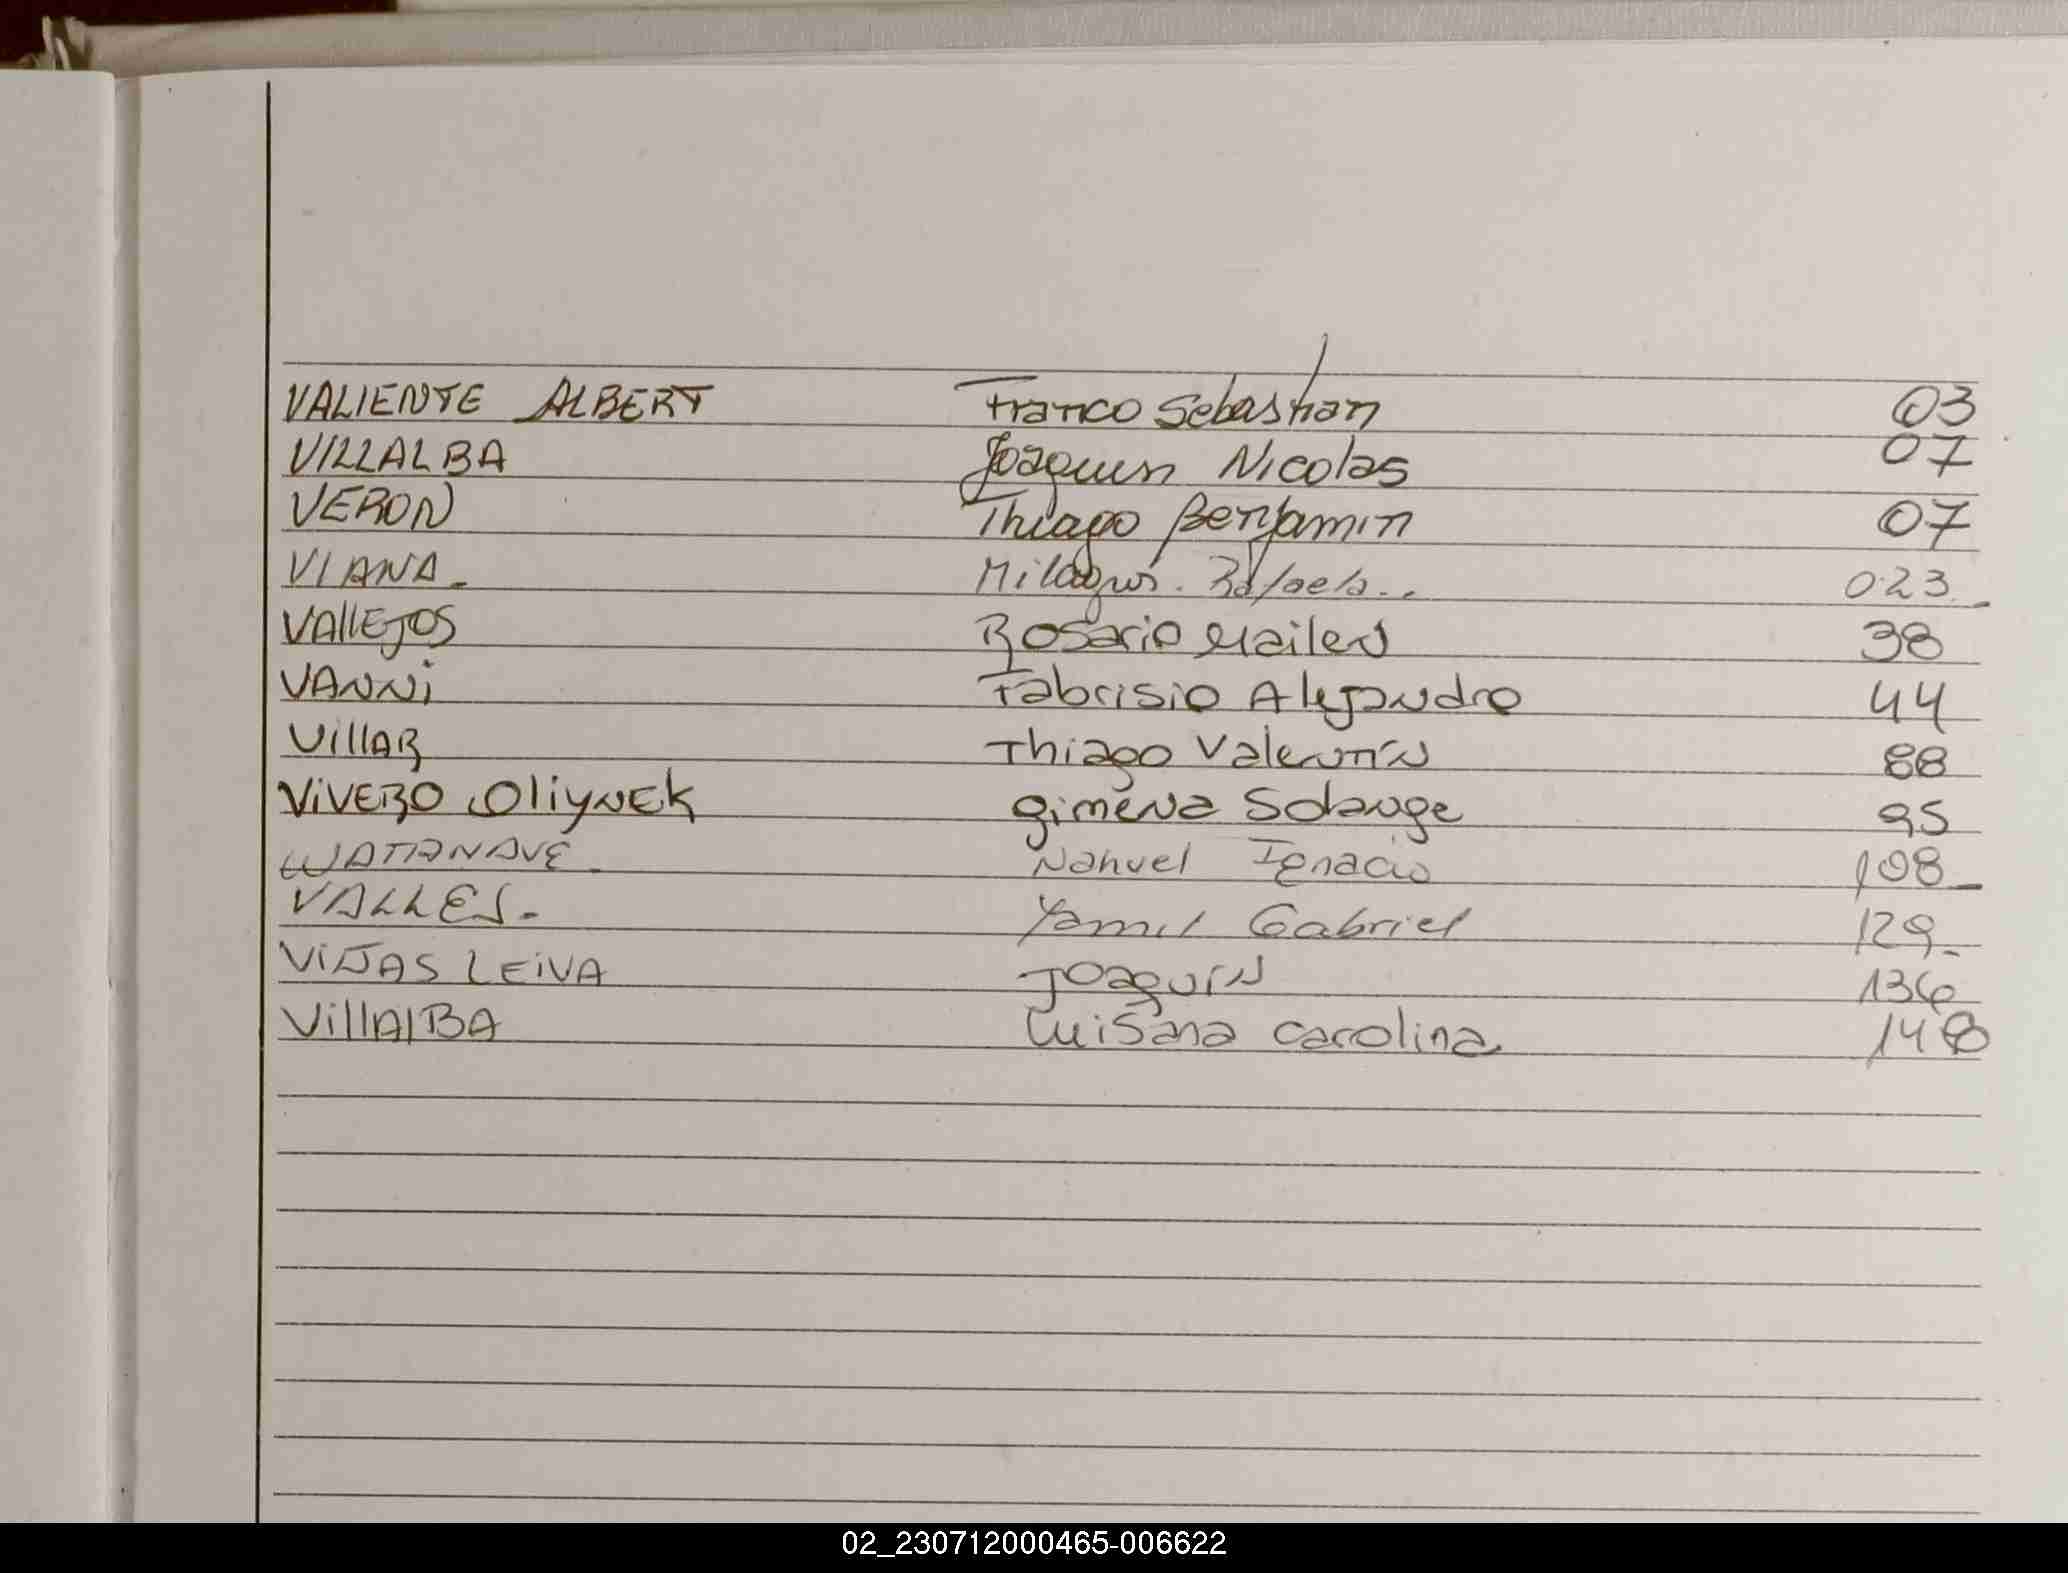 VALIENTE ALBERT Franco Sebastian 03
VILLALBA Joaquin Nicolas 07
VERON Thiago Benjamin 07
VIANA. Milagros. Rafaela.. 023
VAllEJOS Rosario Mailen 38
VANNi Fabrisio Alejandro 44
VillAR Thiago Valentín 88
ViVERO OliyNEk gimena Solange 95
WATTANAVE. Nahuel Ignacio 108
VALLES. Yamil Gabriel 129
ViJAS LEiVA Joaquín 136
VillAlBA Luisana Carolina 148
02_230712000465-006622